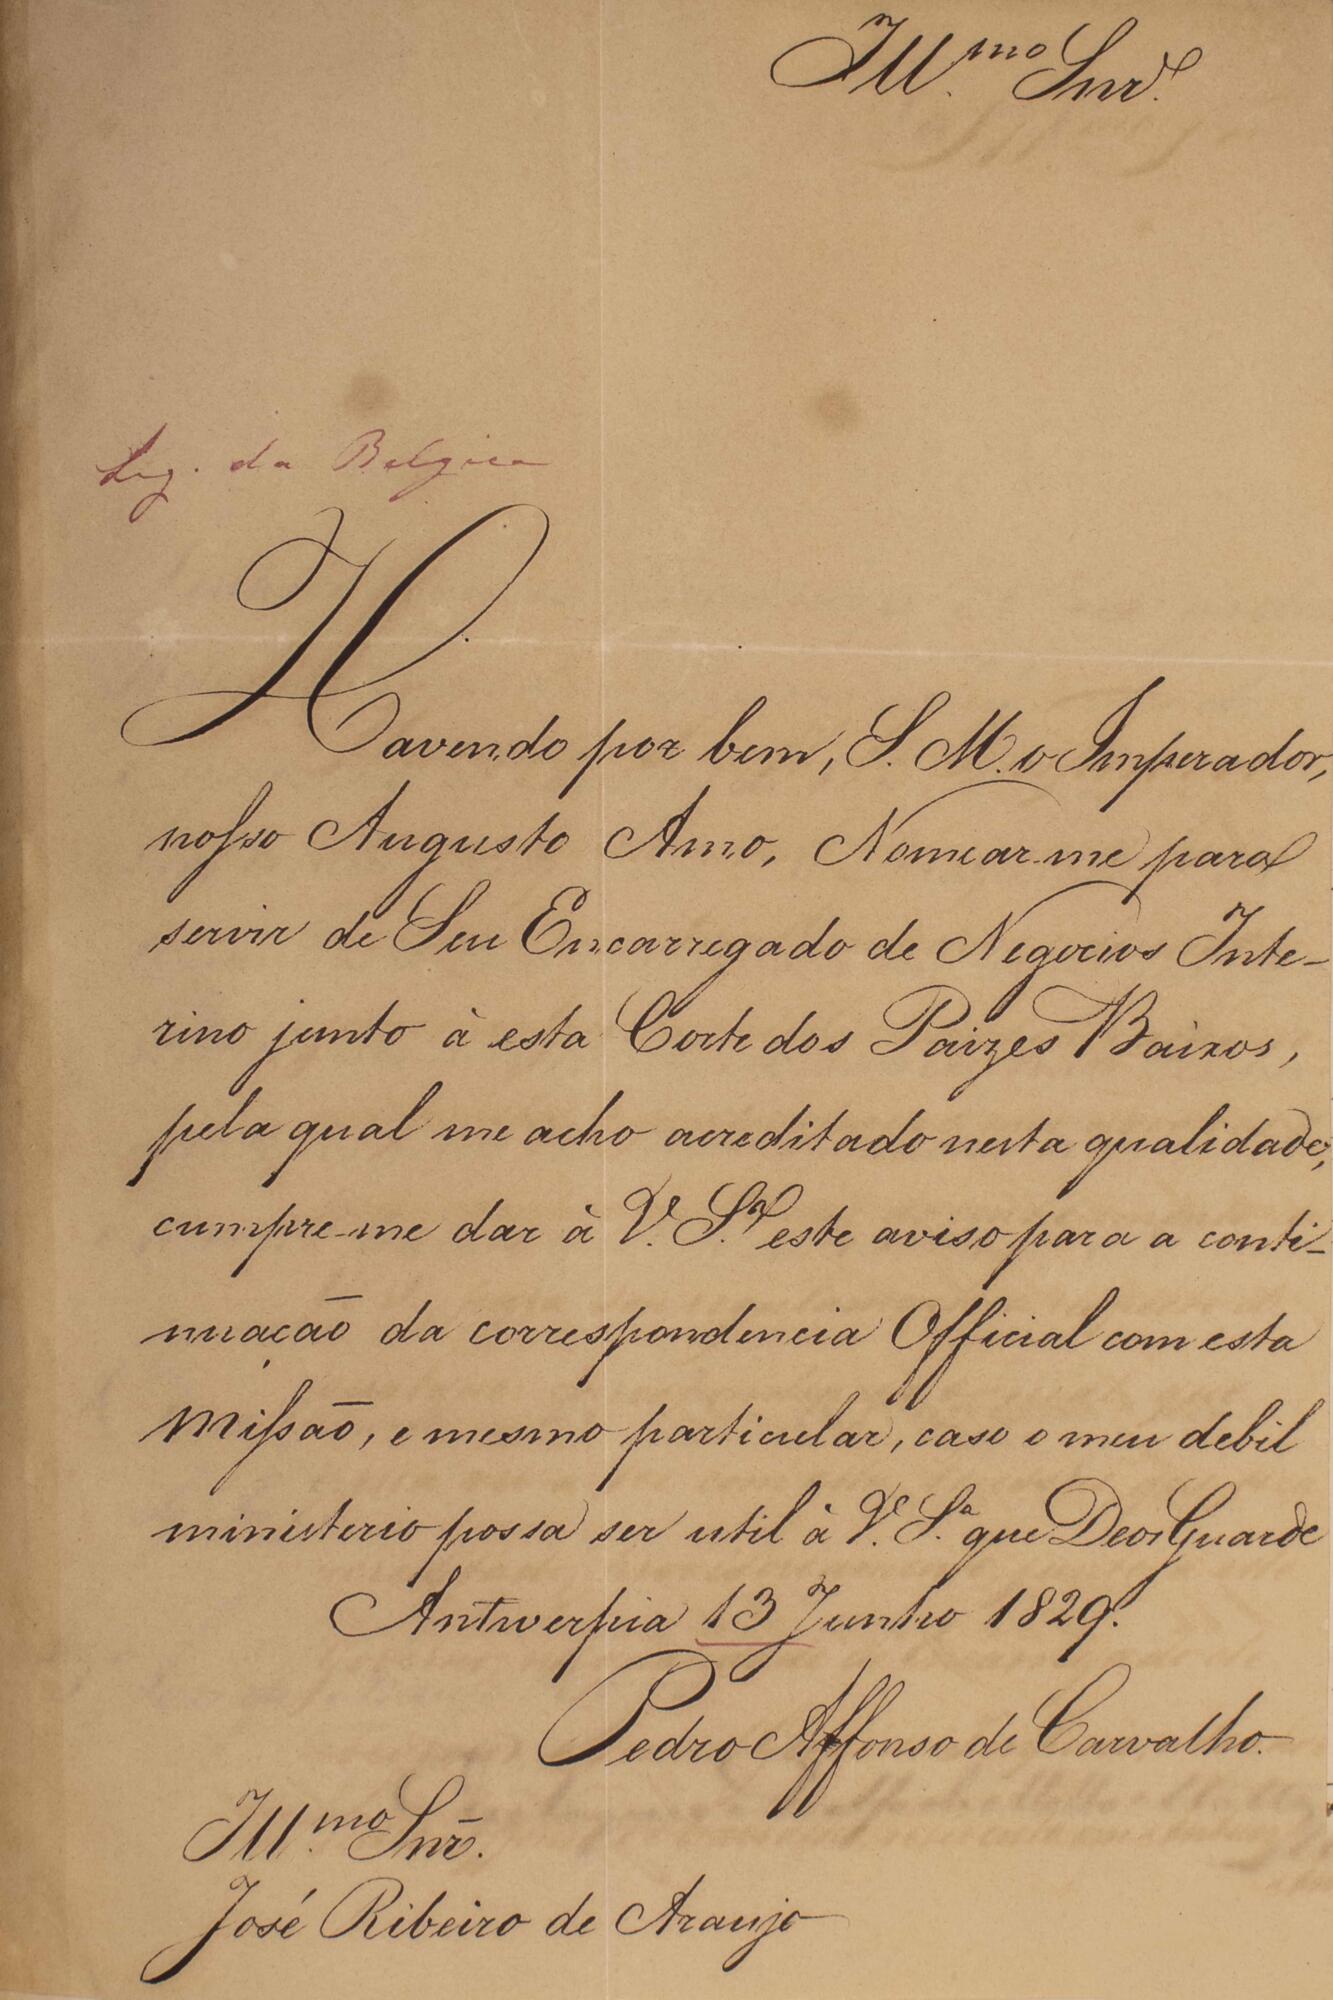 Ill.mo Snr.
Leg. da Belgica
Havendo por bem, S. M. o Imperador,
nosso Augusto Amo, Nomear-me para
servir de Seu Encarregado de Negocios Inte-
rino junto à esta Corte dos Paizes Baixos,
pela qual me acho acreditado nesta qualidade,
cumpre-me dar à V. S.a este aviso para a conti-
nuação da correspondencia Official com esta
Missão, e mesmo particular, caso o meu debil
ministerio possa ser util à V. S.a que Deos Guarde
Antwerpia 13 Junho 1829.
Pedro Affonso de Carvalho.
Ill.mo Snr.
José Ribeiro de Araujo